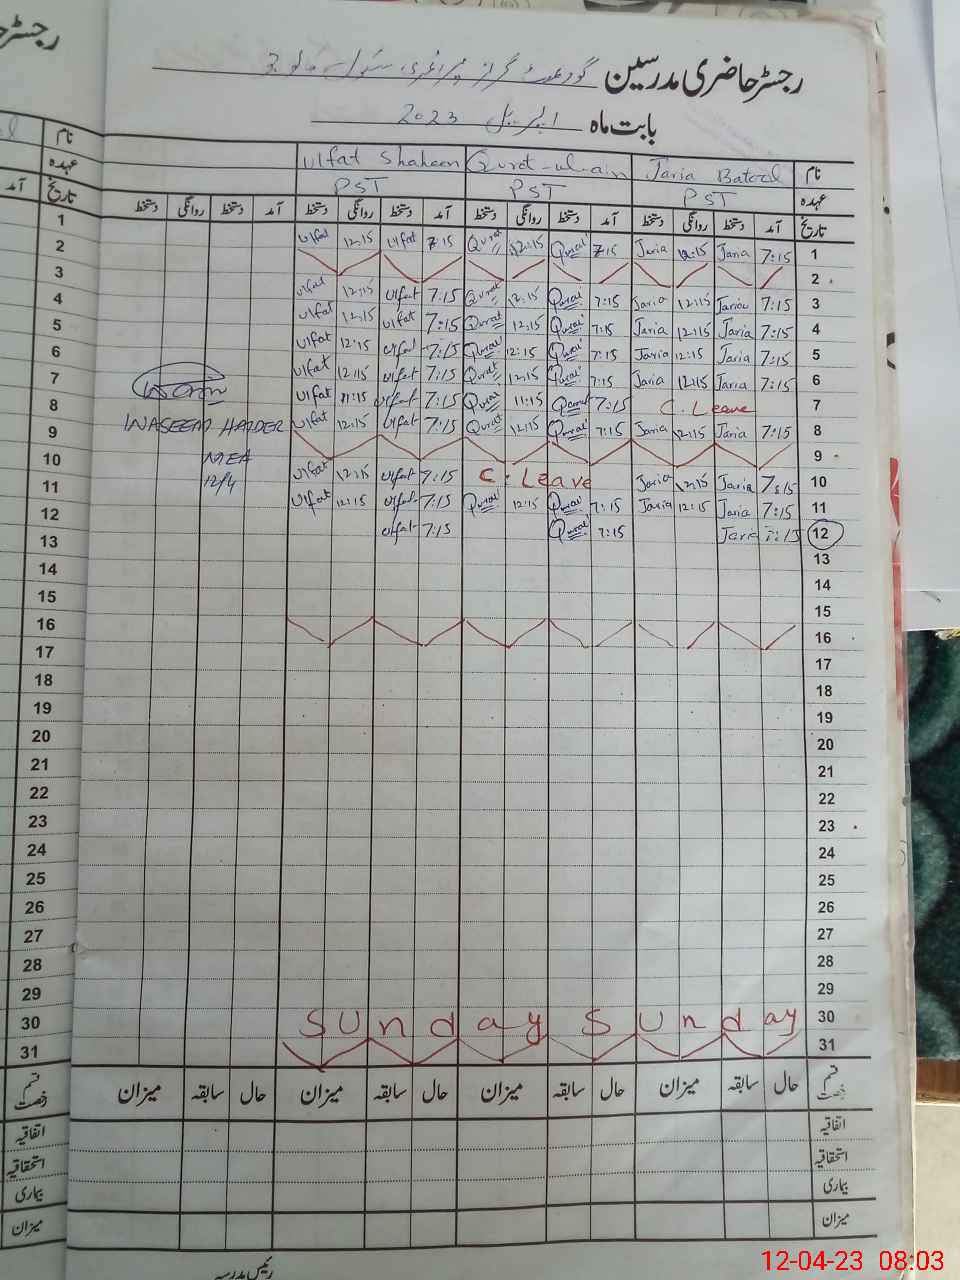 رجسٹر حاضری مدرسین گورنمنٹ گرلز پرائمری سکول
بابت ماہ اپریل 2023
نام Jaria Batool Qurat-ul-ain Ulfat Shaheen
عہدہ PST PST PST
تاریخ آمد دستخط روانگی دستخط آمد دستخط روانگی دستخط آمد دستخط روانگی دستخط آمد دستخط روانگی دستخط
1 7:15 Jaria 12:15 Jaria 7:15 Qurat 12:15 Qurat 7:15 Ulfat 12:15 Ulfat
2
3 7:15 Jaria 12:15 Jaria 7:15 Qurat 12:15 Qurat 7:15 Ulfat 12:15 Ulfat
4 7:15 Jaria 12:15 Jaria 7:15 Qurat 12:15 Qurat 7:15 Ulfat 12:15 Ulfat
5 7:15 Jaria 12:15 Jaria 7:15 Qurat 12:15 Qurat 7:15 Ulfat 12:15 Ulfat
6 7:15 Jaria 12:15 Jaria 7:15 Qurat 12:15 Qurat 7:15 Ulfat 12:15 Ulfat
7 C. Leave 7:15 Qurat 11:15 Qurat 7:15 Ulfat 11:15 Ulfat
8 7:15 Jaria 12:15 Jaria 7:15 Qurat 12:15 Qurat 7:15 Ulfat 12:15 Ulfat
WASEEM HAIDER
9
MEA
10 7:15 Jaria 12:15 Jaria C. Leave 7:15 Ulfat 12:15 Ulfat
12/4
11 7:15 Jaria 12:15 Jaria 7:15 Qurat 12:15 Qurat 7:15 Ulfat 12:15 Ulfat
12 7:15 Jaria 7:15 Qurat 7:15 Ulfat
13
14
15
16
17
18
19
20
21
22
23
24
25
26
27
28
29
30 Sunday Sunday
31
قسم رخصت حال سابقہ میزان حال سابقہ میزان حال سابقہ میزان حال سابقہ میزان
اتفاقیہ
استحقاقیہ
بیماری
میزان
رئیس مدرسہ
رجسٹر
نام
عہدہ
تاریخ آمد
1
2
3
4
5
6
7
8
9
10
11
12
13
14
15
16
17
18
19
20
21
22
23
24
25
26
27
28
29
30
31
قسم رخصت
اتفاقیہ
استحقاقیہ
بیماری
میزان
12-04-23 08:03